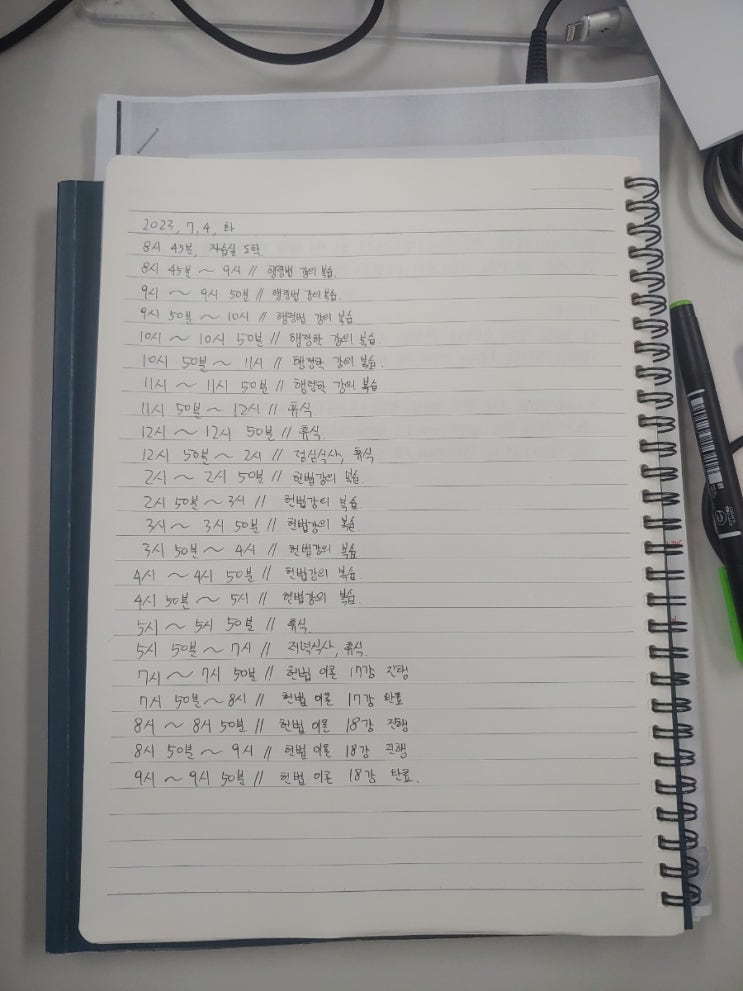 2023, 7, 4, 화
8시 45분, 자습실 도착
8시 45분 ~ 9시 // 행정법 강의 복습.
9시 ~ 9시 50분 // 행정법 강의 복습.
9시 50분 ~ 10시 // 행정법 강의 복습
10시 ~ 10시 50분 // 행정학 강의 복습.
10시 50분 ~ 11시 // 행정학 강의 복습.
11시 ~ 11시 50분 // 행정학 강의 복습
11시 50분 ~ 12시 // 휴식
12시 ~ 12시 50분 // 휴식.
12시 50분 ~ 2시 // 점심식사, 휴식
2시 ~ 2시 50분 // 헌법강의 복습.
2시 50분 ~ 3시 // 헌법강의 복습.
3시 ~ 3시 50분 // 헌법강의 복습.
3시 50분 ~ 4시 // 헌법강의 복습
4시 ~ 4시 50분 // 헌법강의 복습.
4시 50분 ~ 5시 // 헌법강의 복습.
5시 ~ 5시 50분 // 휴식.
5시 50분 ~ 7시 // 저녁식사, 휴식.
7시 ~ 7시 50분 // 헌법 이론 17강 진행
7시 50분 ~ 8시 // 헌법 이론 17강 완료
8시 ~ 8시 50분 // 헌법 이론 18강 진행
8시 50분 ~ 9시 // 헌법 이론 18강 진행
9시 ~ 9시 50분 // 헌법 이론 18강 완료.